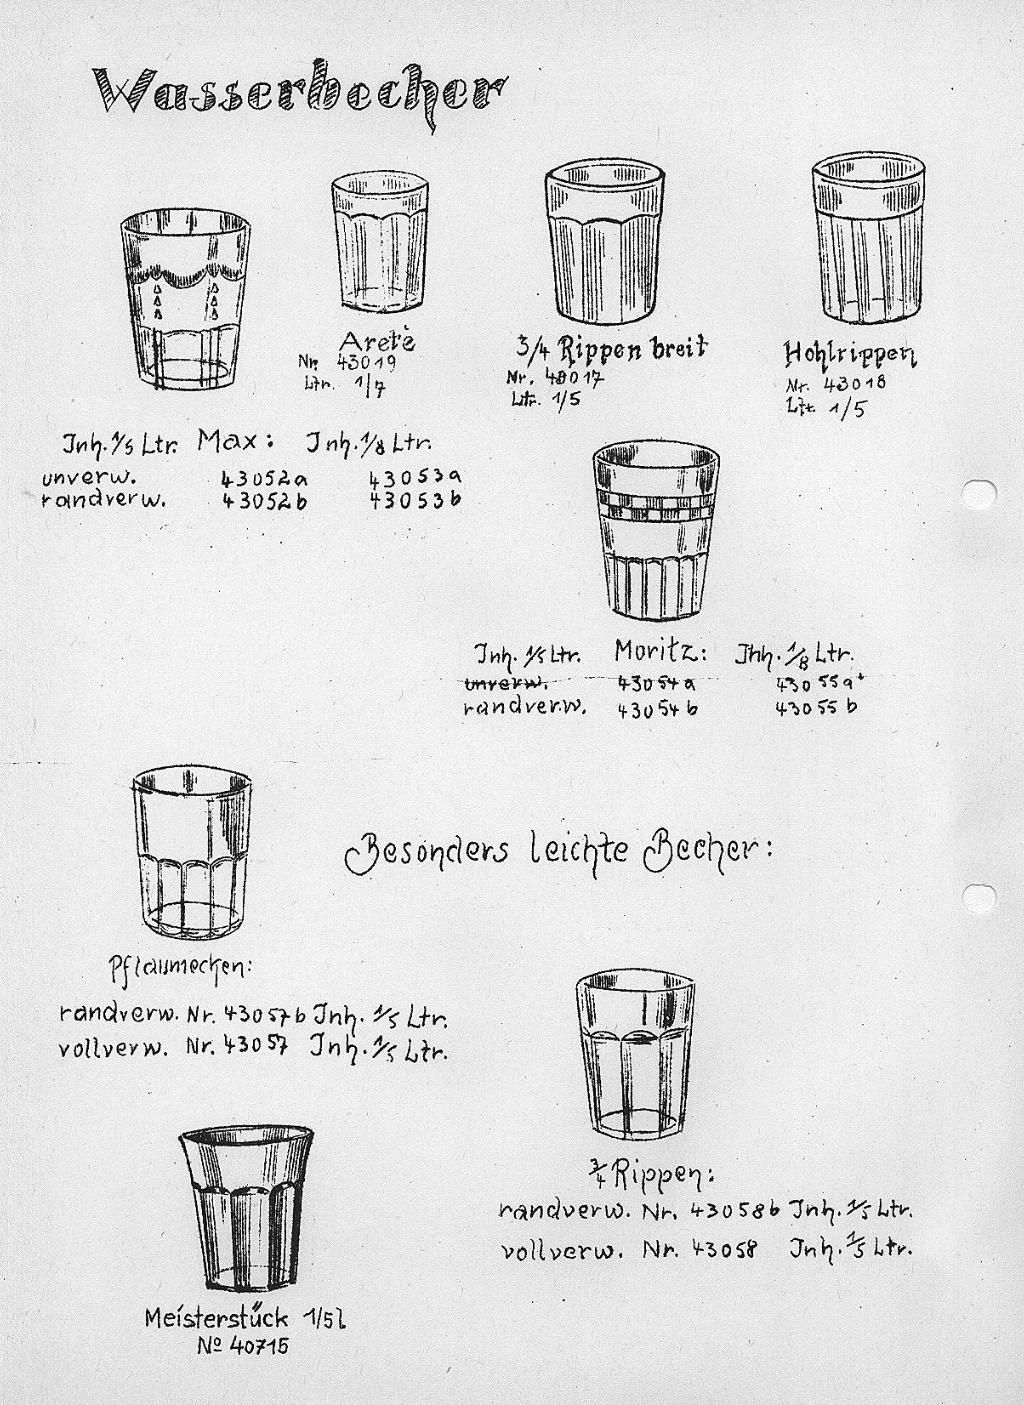 Wasserbecher
Aretè
Nr. 43019
Ltr. 1/7
3/4 Rippen breit
Nr. 43017
Ltr. 1/5
Hohlrippen
Nr. 43018
Ltr. 1/5
Inh. 1/5 Ltr. Max: Inh. 1/8 Ltr.
unverw. 43052a 43053a
randverw. 43052b 43053b
Inh. 1/5 Ltr. Moritz: Inh. 1/8 Ltr.
unverw. 43054a 43055a
randverw. 43054b 43055b
Besonders leichte Becher:
Pflaumecken:
randverw. Nr. 43057b Inh. 1/5 Ltr.
vollverw. Nr. 43057 Inh. 1/5 Ltr.
3/4 Rippen:
randverw. Nr. 43058b Inh. 1/5 Ltr.
vollverw. Nr. 43058 Inh. 1/5 Ltr.
Meisterstück 1/5 l
Nº 40715